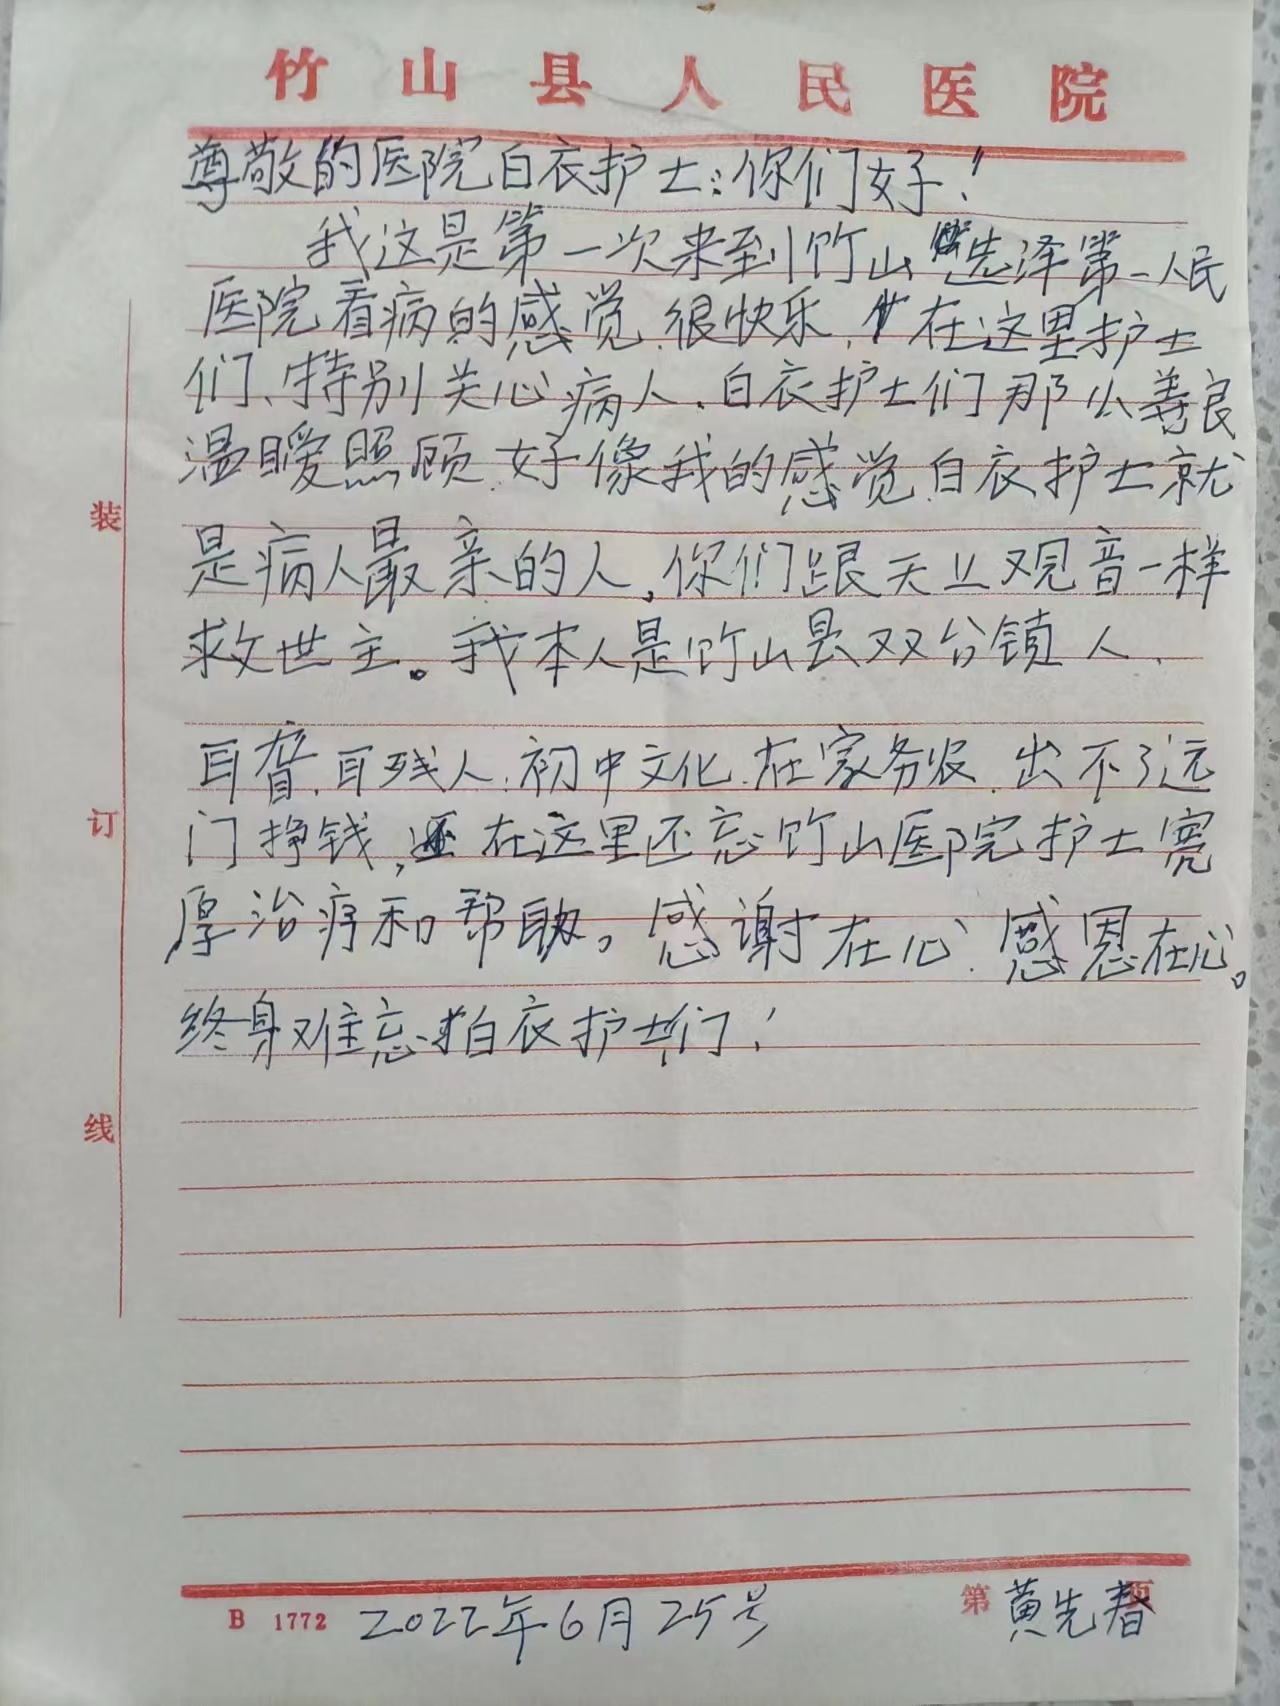 竹山县人民医院
尊敬的医院白衣护士:你们好!
我这是第一次来到竹山选泽第一人民
医院看病的感觉.很快乐.在这里护士
们、特别关心病人.白衣护士们那么善良
温暖照顾.好像我的感觉.白衣护士就
是病人最亲的人,你们跟天上观音一样
救世主。我本人是竹山县双台镇人.
耳聋.耳残人.初中文化.在家务农.出不了远
门挣钱,在这里还忘竹山医院护士宽
厚治疗和帮助。感谢在心.感恩在心。
终身难忘白衣护士们!
装
订
线
B 1772 2022年6月25号 第 黄先春